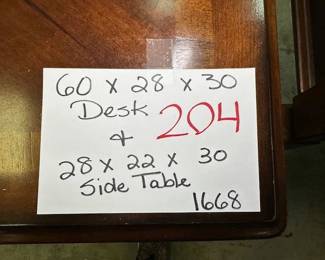 60 x 28 x 30
Desk 204
&
28 x 22 x 30
Side Table
1668